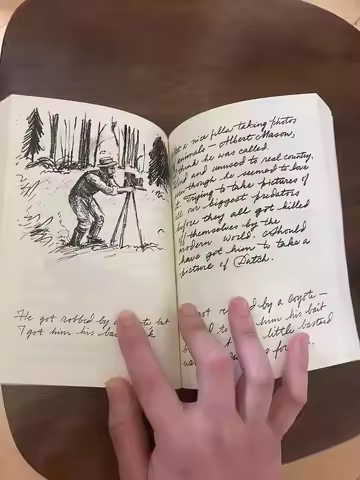 He got robbed by a coyote but
I got him his back
Met a nice fella taking photos
animals – Albert Mason,
think he was called.
kind and unused to real country,
though he seemed to love
it. Trying to take pictures of
all our biggest predators
before they all got killed
off themselves by the
modern world. Should
have got him to take a
picture of Dutch.
got by a Coyote –
him his bait
little bastard